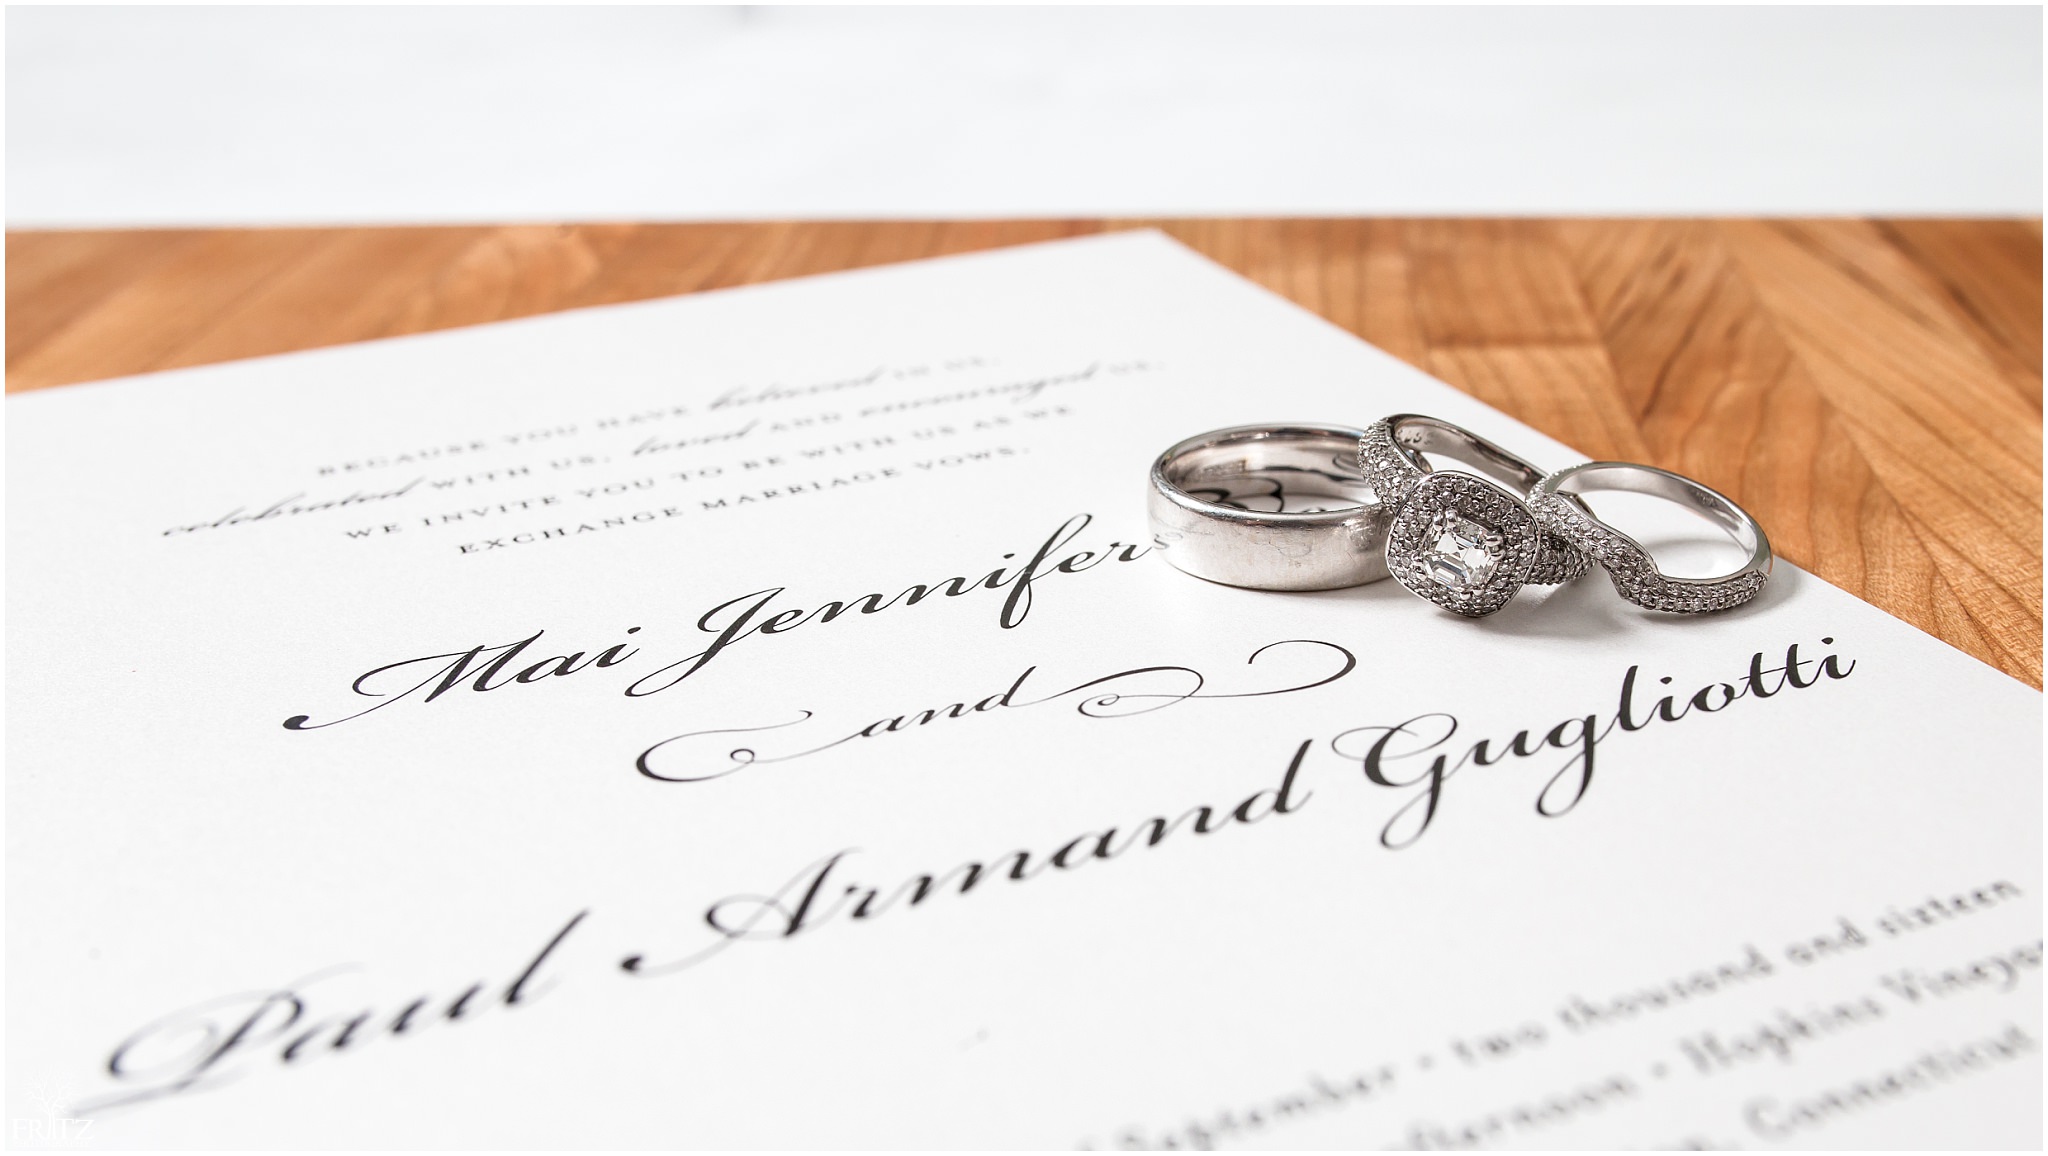 BECAUSE YOU HAVE believed IN US,
celebrated WITH US, loved AND encouraged US,
WE INVITE YOU TO BE WITH US AS WE
EXCHANGE MARRIAGE VOWS.
Mai Jennifers
and
Paul Armand Gugliotti
September • two thousand and sixteen
afternoon • Hopkins Vineya
Connecticut
FRITZ